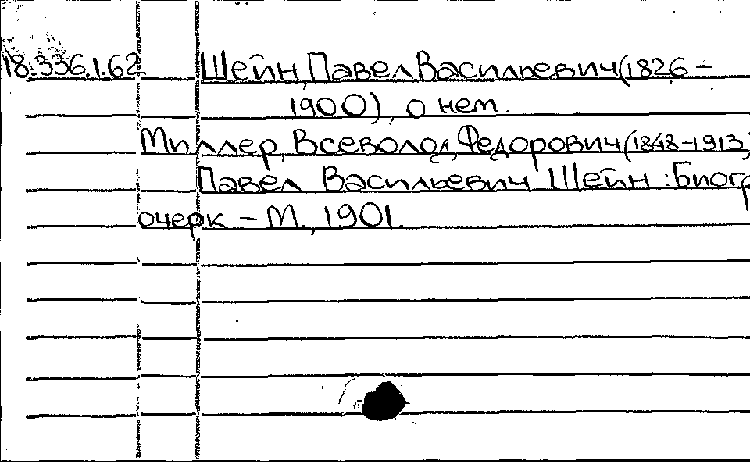 18.336.1.62 Шейн, Павел Васильевич (1826 –
1900), о нем.
Миллер, Всеволод Федорович (1848–1913)
Павел Васильевич Шейн : Биогр
очерк – М., 1901.